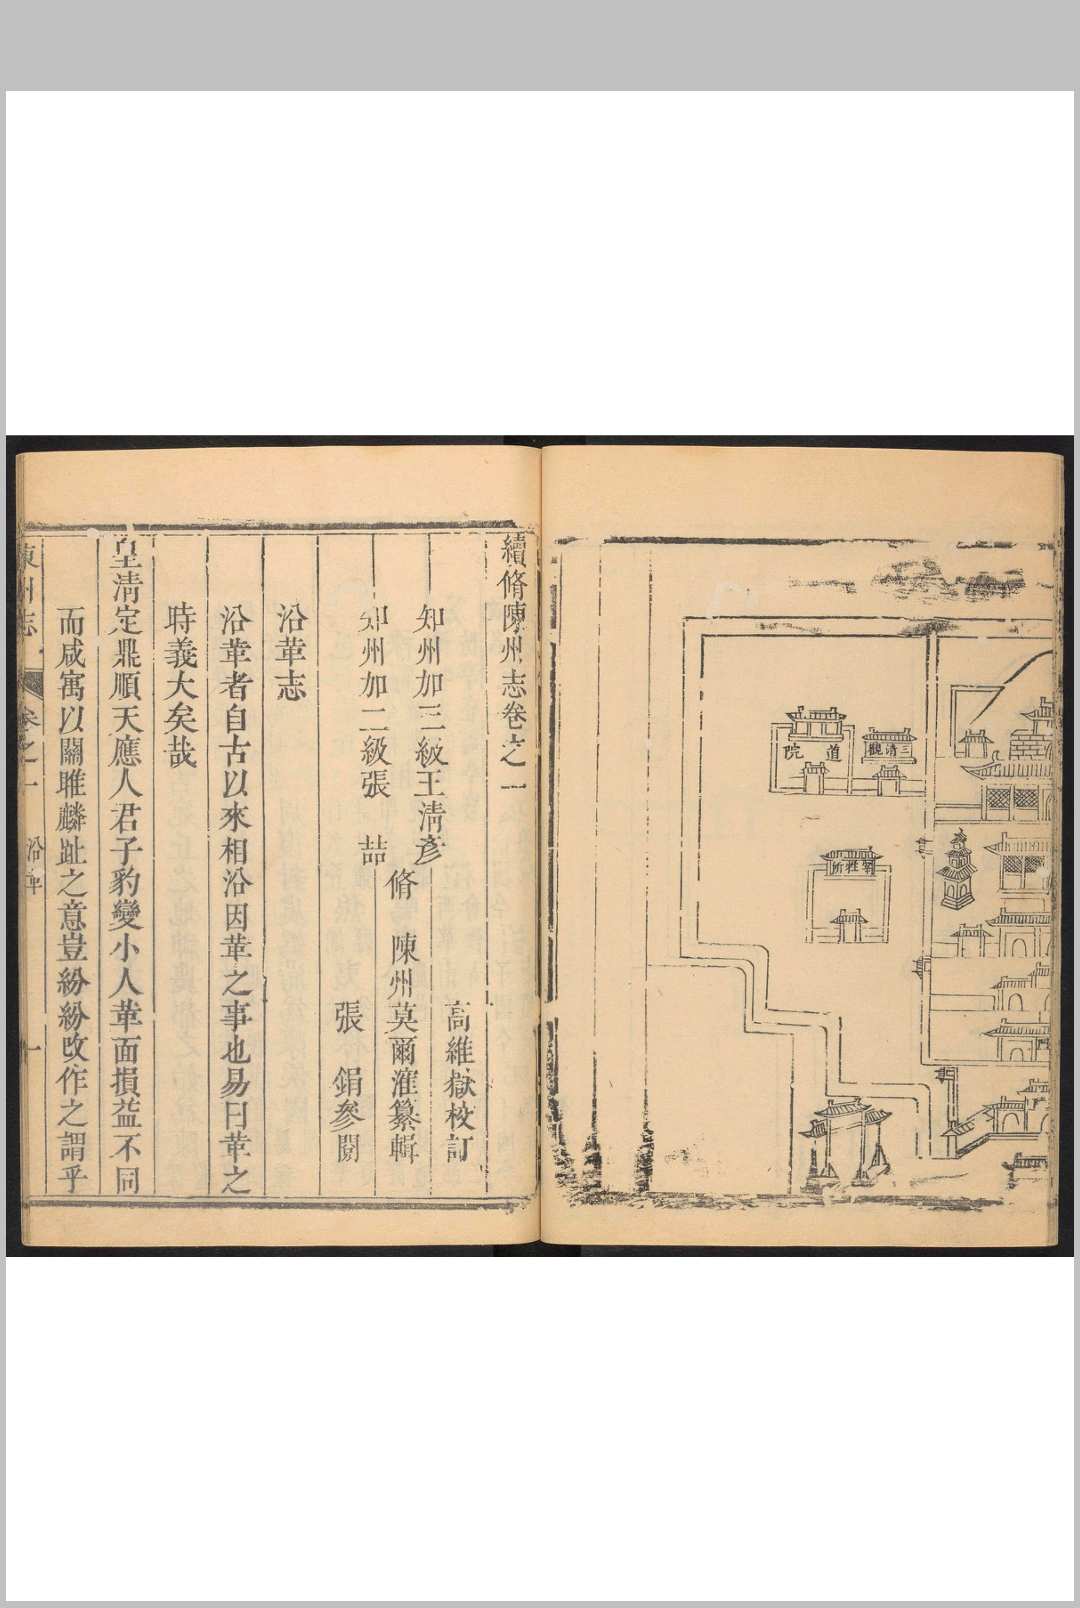 道院
三清觀
宰牲所
續脩陳州志卷之一
知州加三級王清彥
知州加二級張喆
脩
陳州莫爾漼纂輯
高維嶽校訂
張鋗參閱
沿革志
沿革者自古以來相沿因革之事也易曰革之
時義大矣哉
皇清定鼎順天應人君子豹變小人革面損益不同
而咸寓以關雎麟趾之意豈紛紛改作之謂乎
陳州志
卷之一
沿革
一